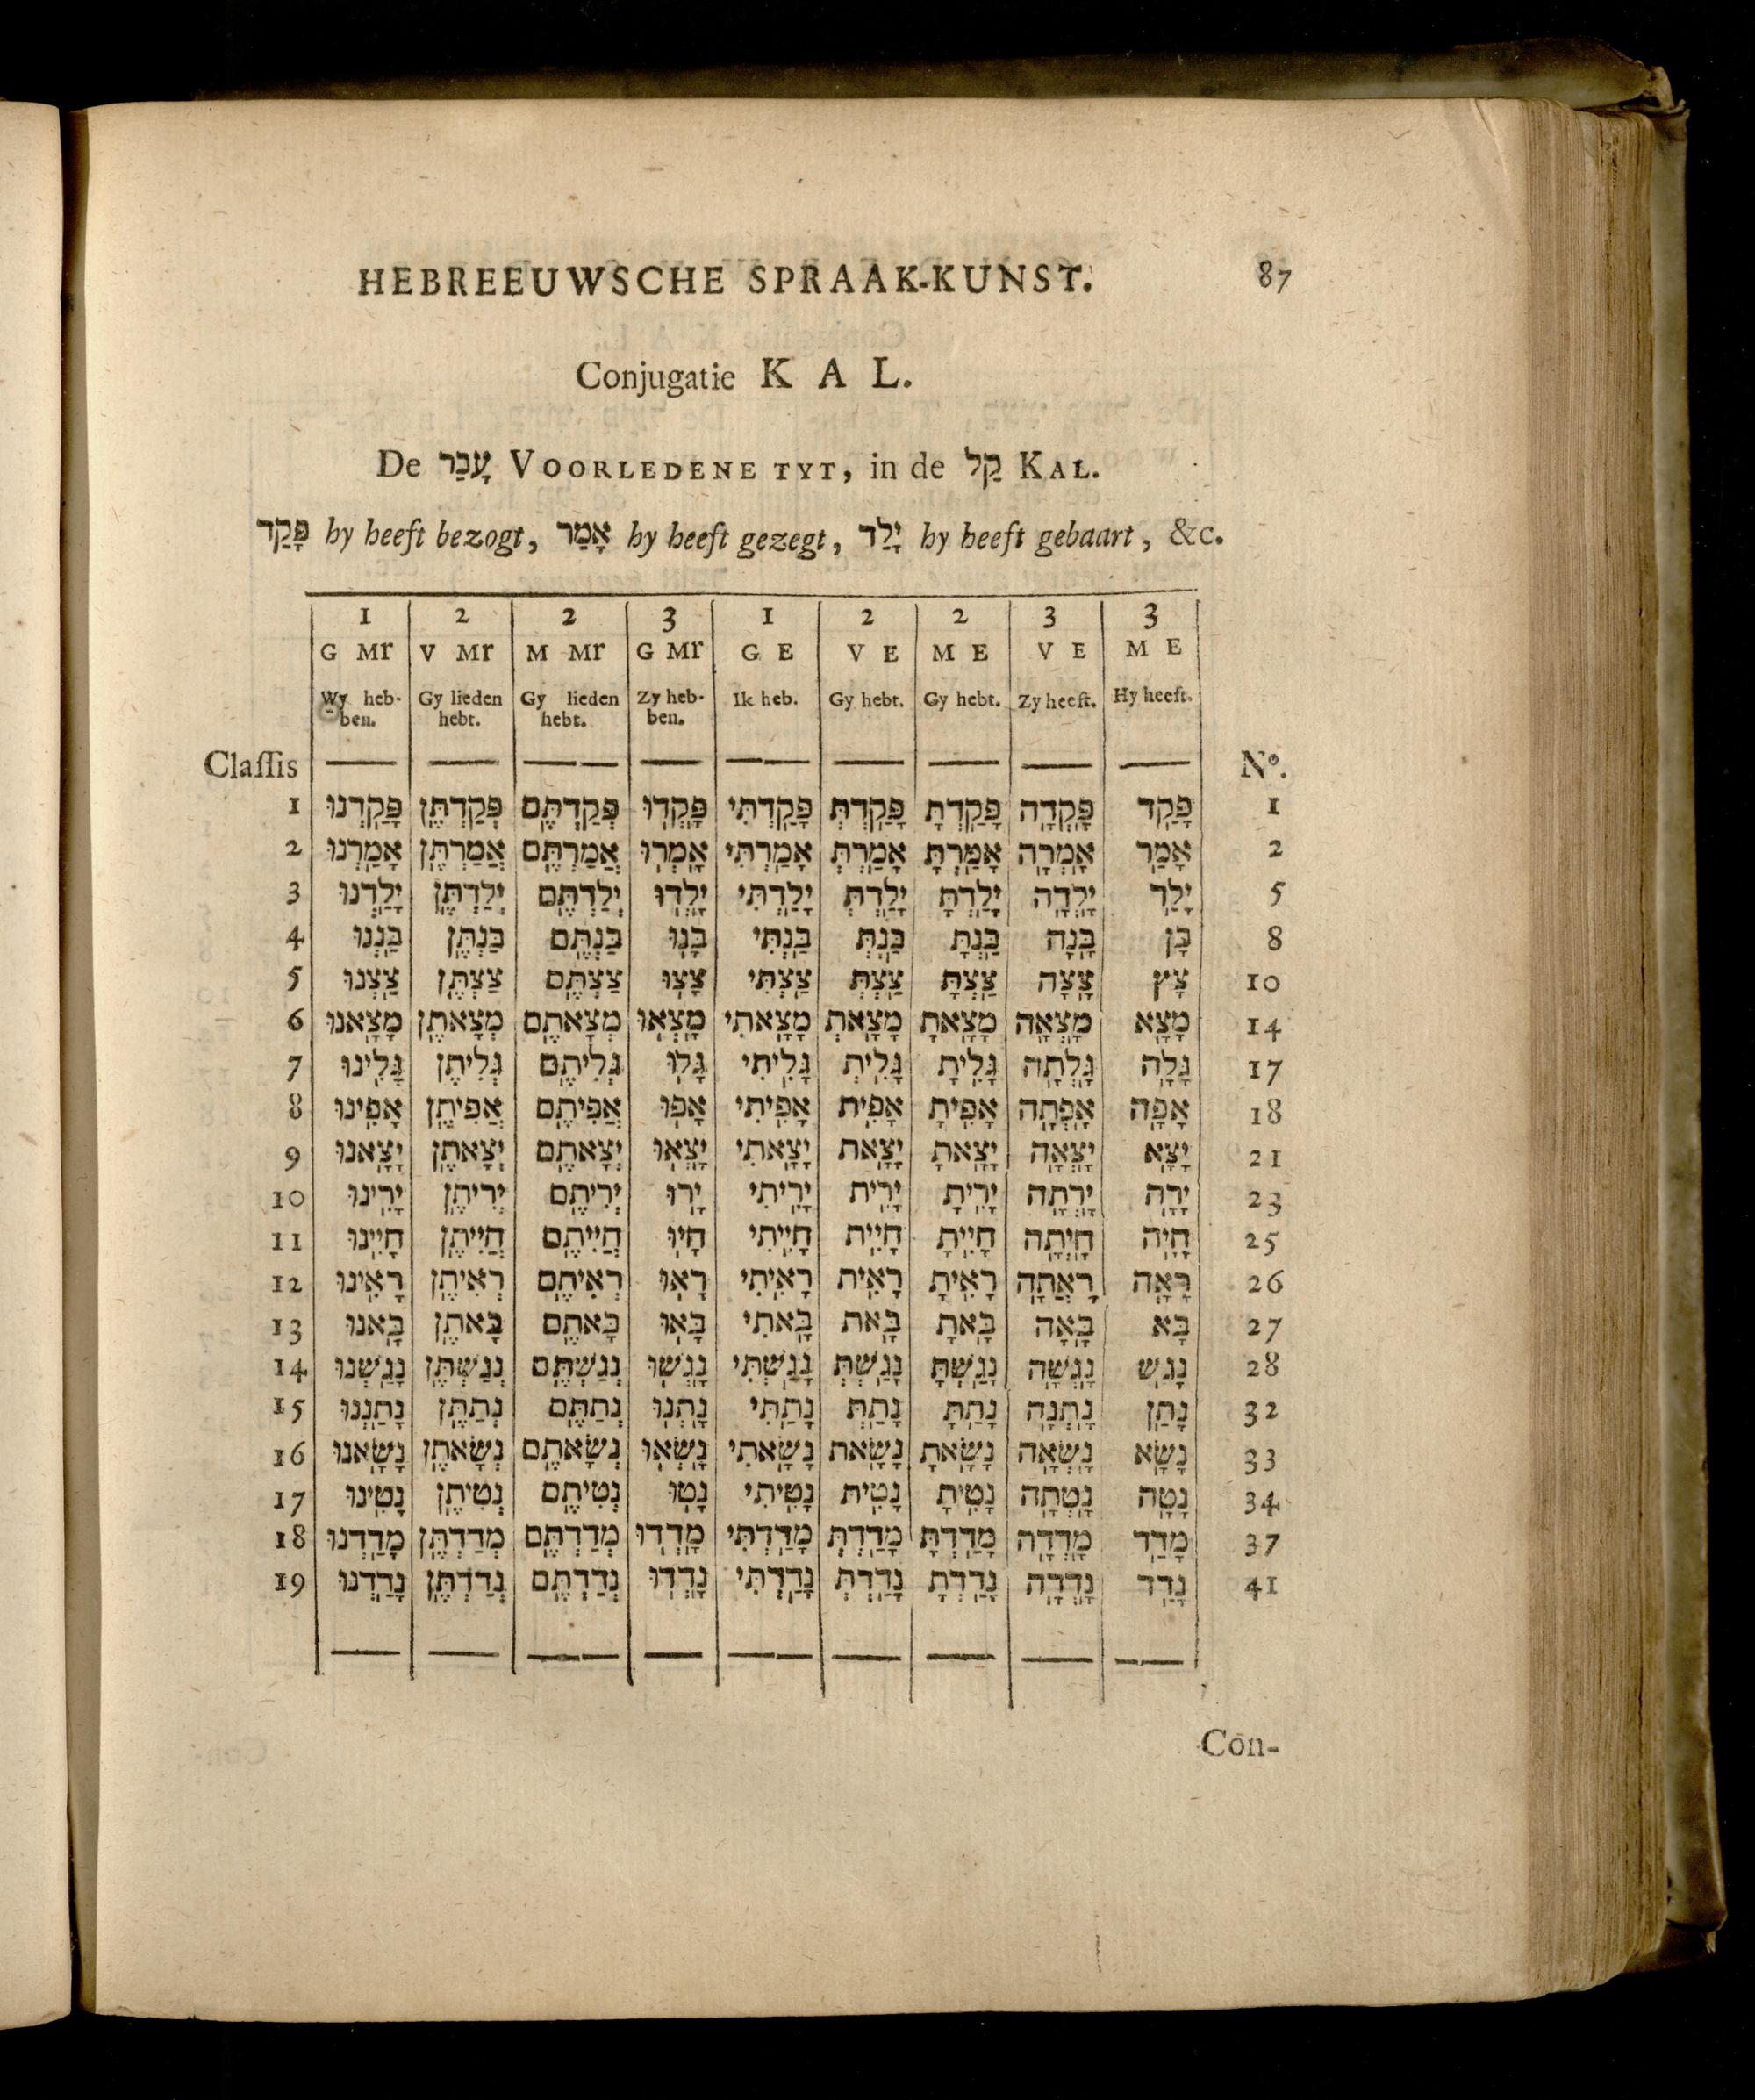 HEBREEUWSCHE SPRAAK-KUNST. 87
Conjugatie K A L.
De עָבַר VOORLEDENE TYT, in de קַל KAL.
פָּקַד hy heeft bezogt, אָמַר hy heeft gezegt, יָלַד hy heeft gebaart, &c.
1 2 2 3 1 2 2 3 3
G Mr V Mr M Mr G Mr G E V E M E V E M E
Wy heb- Gy lieden Gy lieden Zy heb- Ik heb. Gy hebt. Gy hebt. Zy heeft. Hy heeft.
ben. hebt. hebt. ben.
Classis No.
1 פָּקַדְנוּ פְּקַדְתֶּן פְּקַדְתֶּם פָּקְדוּ פָּקַדְתִּי פָּקַדְתְּ פָּקַדְתָּ פָּקְדָה פָּקַד 1
2 אָמַרְנוּ אֲמַרְתֶּן אֲמַרְתֶּם אָמְרוּ אָמַרְתִּי אָמַרְתְּ אָמַרְתָּ אָמְרָה אָמַר 2
3 יָלַדְנוּ יְלַדְתֶּן יְלַדְתֶּם יָלְדוּ יָלַדְתִּי יָלַדְתְּ יָלַדְתָּ יָלְדָה יָלַד 5
4 בַּנְנוּ בַּנְתֶּן בַּנְתֶּם בָּנוּ בַּנְתִּי בַּנְתְּ בַּנְתָּ בָּנָה בָּן 8
5 צַצְנוּ צַצְתֶּן צַצְתֶּם צָצוּ צַצְתִּי צַצְתְּ צַצְתָּ צָצָה צָץ 10
6 מָצָאנוּ מְצָאתֶן מְצָאתֶם מָצְאוּ מָצָאתִי מָצָאתְ מָצָאתָ מָצְאָה מָצָא 14
7 גָּלִינוּ גְּלִיתֶן גְּלִיתֶם גָּלוּ גָּלִיתִי גָּלִיתְ גָּלִיתָ גָּלְתָה גָּלָה 17
8 אָפִינוּ אֲפִיתֶן אֲפִיתֶם אָפוּ אָפִיתִי אָפִית אָפִיתָ אָפְתָה אָפָה 18
9 יָצָאנוּ יְצָאתֶן יְצָאתֶם יָצְאוּ יָצָאתִי יָצָאת יָצָאתָ יָצְאָה יָצָא 21
10 יָרִינוּ יְרִיתֶן יְרִיתֶם יָרוּ יָרִיתִי יָרִית יָרִיתָ יָרְתָה יָרָה 23
11 חָיִינוּ חֲיִיתֶן חֲיִיתֶם חָיוּ חָיִיתִי חָיִית חָיִיתָ חָיְתָה חָיָה 25
12 רָאִינוּ רְאִיתֶן רְאִיתֶם רָאוּ רָאִיתִי רָאִית רָאִיתָ רָאֲתָה רָאָה 26
13 בָּאנוּ בָּאתֶן בָּאתֶם בָּאוּ בָּאתִי בָּאת בָּאתָ בָּאָה בָּא 27
14 נָגַשְׁנוּ נְגַשְׁתֶּן נְגַשְׁתֶּם נָגְשׁוּ נָגַשְׁתִּי נָגַשְׁתְּ נָגַשְׁתָּ נָגְשָׁה נָגַשׁ 28
15 נָתַנְנוּ נְתַתֶּן נְתַתֶּם נָתְנוּ נָתַתִּי נָתַתְּ נָתַתָּ נָתְנָה נָתַן 32
16 נָשָׂאנוּ נְשָׂאתֶן נְשָׂאתֶם נָשְׂאוּ נָשָׂאתִי נָשָׂאת נָשָׂאתָ נָשְׂאָה נָשָׂא 33
17 נָטִינוּ נְטִיתֶן נְטִיתֶם נָטוּ נָטִיתִי נָטִית נָטִיתָ נָטְתָה נָטָה 34
18 מָדַדְנוּ מְדַדְתֶּן מְדַדְתֶּם מָדְדוּ מָדַדְתִּי מָדַדְתְּ מָדַדְתָּ מָדְדָה מָדַד 37
19 נָדַדְנוּ נְדַדְתֶּן נְדַדְתֶּם נָדְדוּ נָדַדְתִּי נָדַדְתְּ נָדַדְתָּ נָדְדָה נָדַד 41
Con-